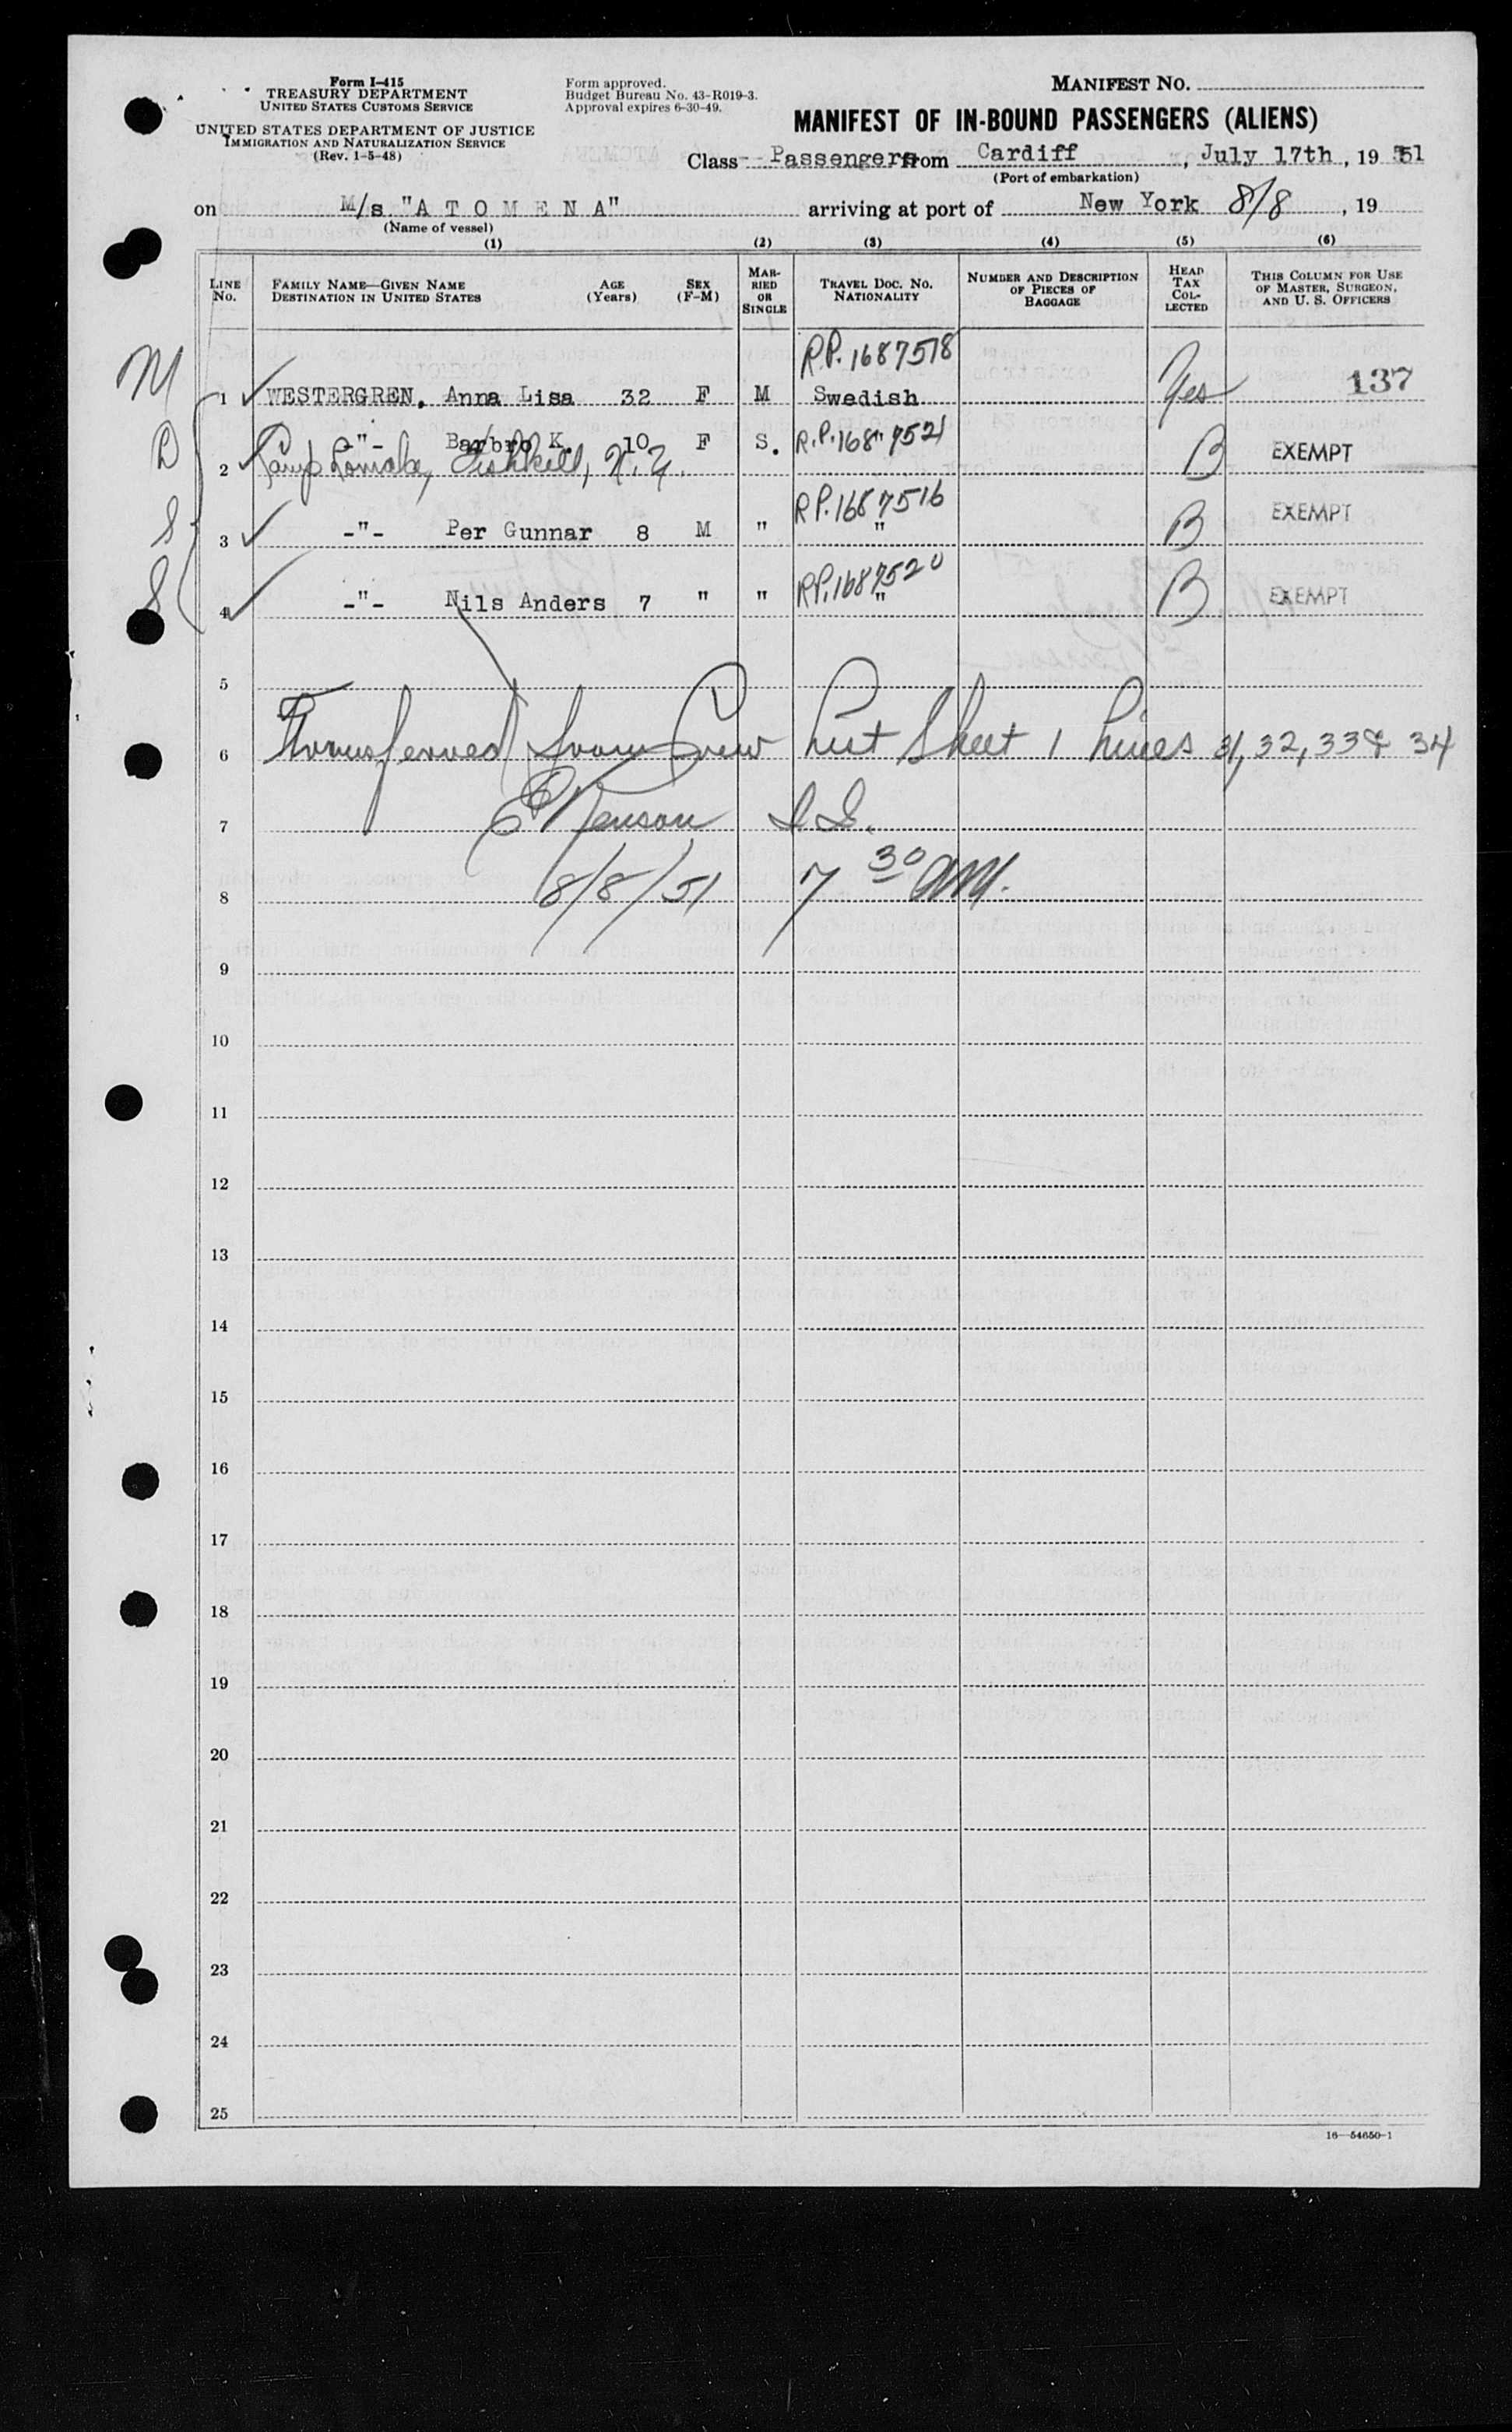 Form I-415
TREASURY DEPARTMENT
UNITED STATES CUSTOMS SERVICE
UNITED STATES DEPARTMENT OF JUSTICE
IMMIGRATION AND NATURALIZATION SERVICE
(Rev. 1-5-48)
Form approved.
Budget Bureau No. 43-R019-3.
Approval expires 6-30-49.
MANIFEST NO.
MANIFEST OF IN-BOUND PASSENGERS (ALIENS)
Class Passengers from Cardiff, July 17th, 1951
(Port of embarkation)
on M/s "ATOMENA" arriving at port of New York 8/8, 19
(Name of vessel)
(1) (2) (3) (4) (5) (6)
LINE NO.
FAMILY NAME—GIVEN NAME
DESTINATION IN UNITED STATES
AGE (Years)
SEX (F-M)
MARRIED OR SINGLE
TRAVEL DOC. NO.
NATIONALITY
NUMBER AND DESCRIPTION OF PIECES OF BAGGAGE
HEAD TAX COLLECTED
THIS COLUMN FOR USE OF MASTER, SURGEON, AND U. S. OFFICERS
R.P. 1687518
M 1 WESTERGREN, Anna Lisa 32 F M Swedish Yes 137
D 2 -"- Barbro K. 10 F S. R.P. 1687521 " B EXEMPT
Camp Fishkill, N.Y.
R.P. 1687516
S 3 -"- Per Gunnar 8 M " " B EXEMPT
R.P. 1687520
S 4 -"- Nils Anders 7 " " " B EXEMPT
5
6 Transferred from Crew List Sheet 1 Lines 31, 32, 33 & 34
7 I.S.
8 8/8/51 7 30 AM.
9
10
11
12
13
14
15
16
17
18
19
20
21
22
23
24
25
16—54650-1